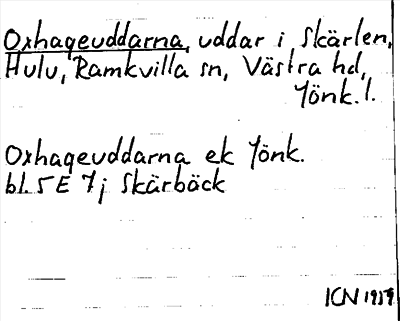 Oxhageuddarna, uddar i Skärlen,
Hulu, Ramkvilla sn, Västra hd,
Jönk. l.
Oxhageuddarna ek Jönk.
bl. 5E 7j Skärbäck
ICN 1959